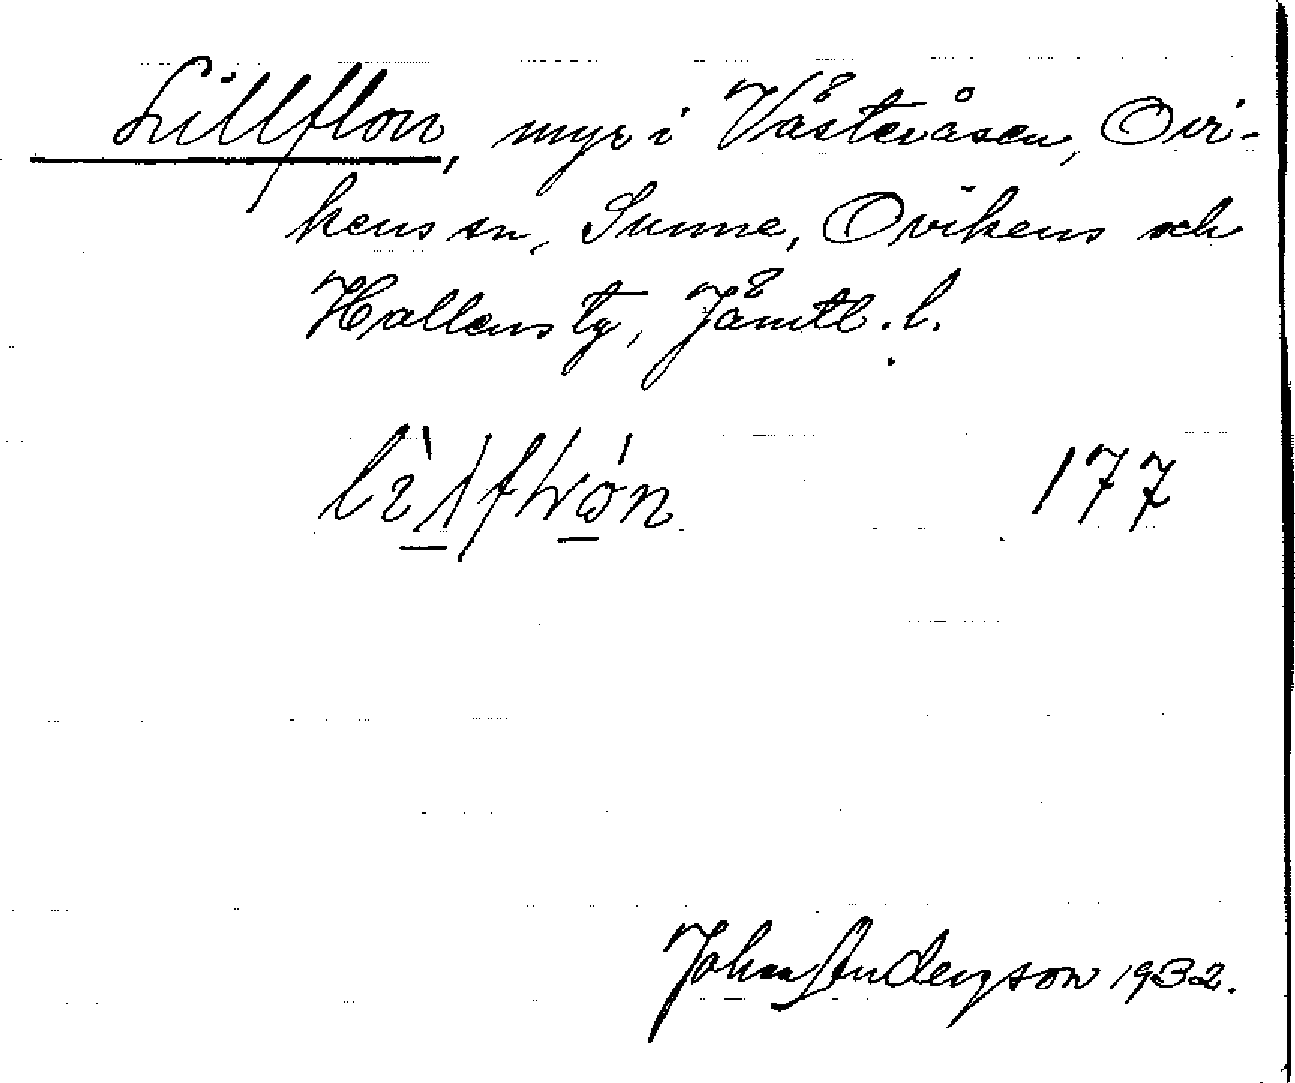 Lillflon, myr i Västeråsen, Ovi-
kens sn, Sunne, Ovikens och
Hallens tg, Jämtl. l.
177
Johan Anderson 1932.